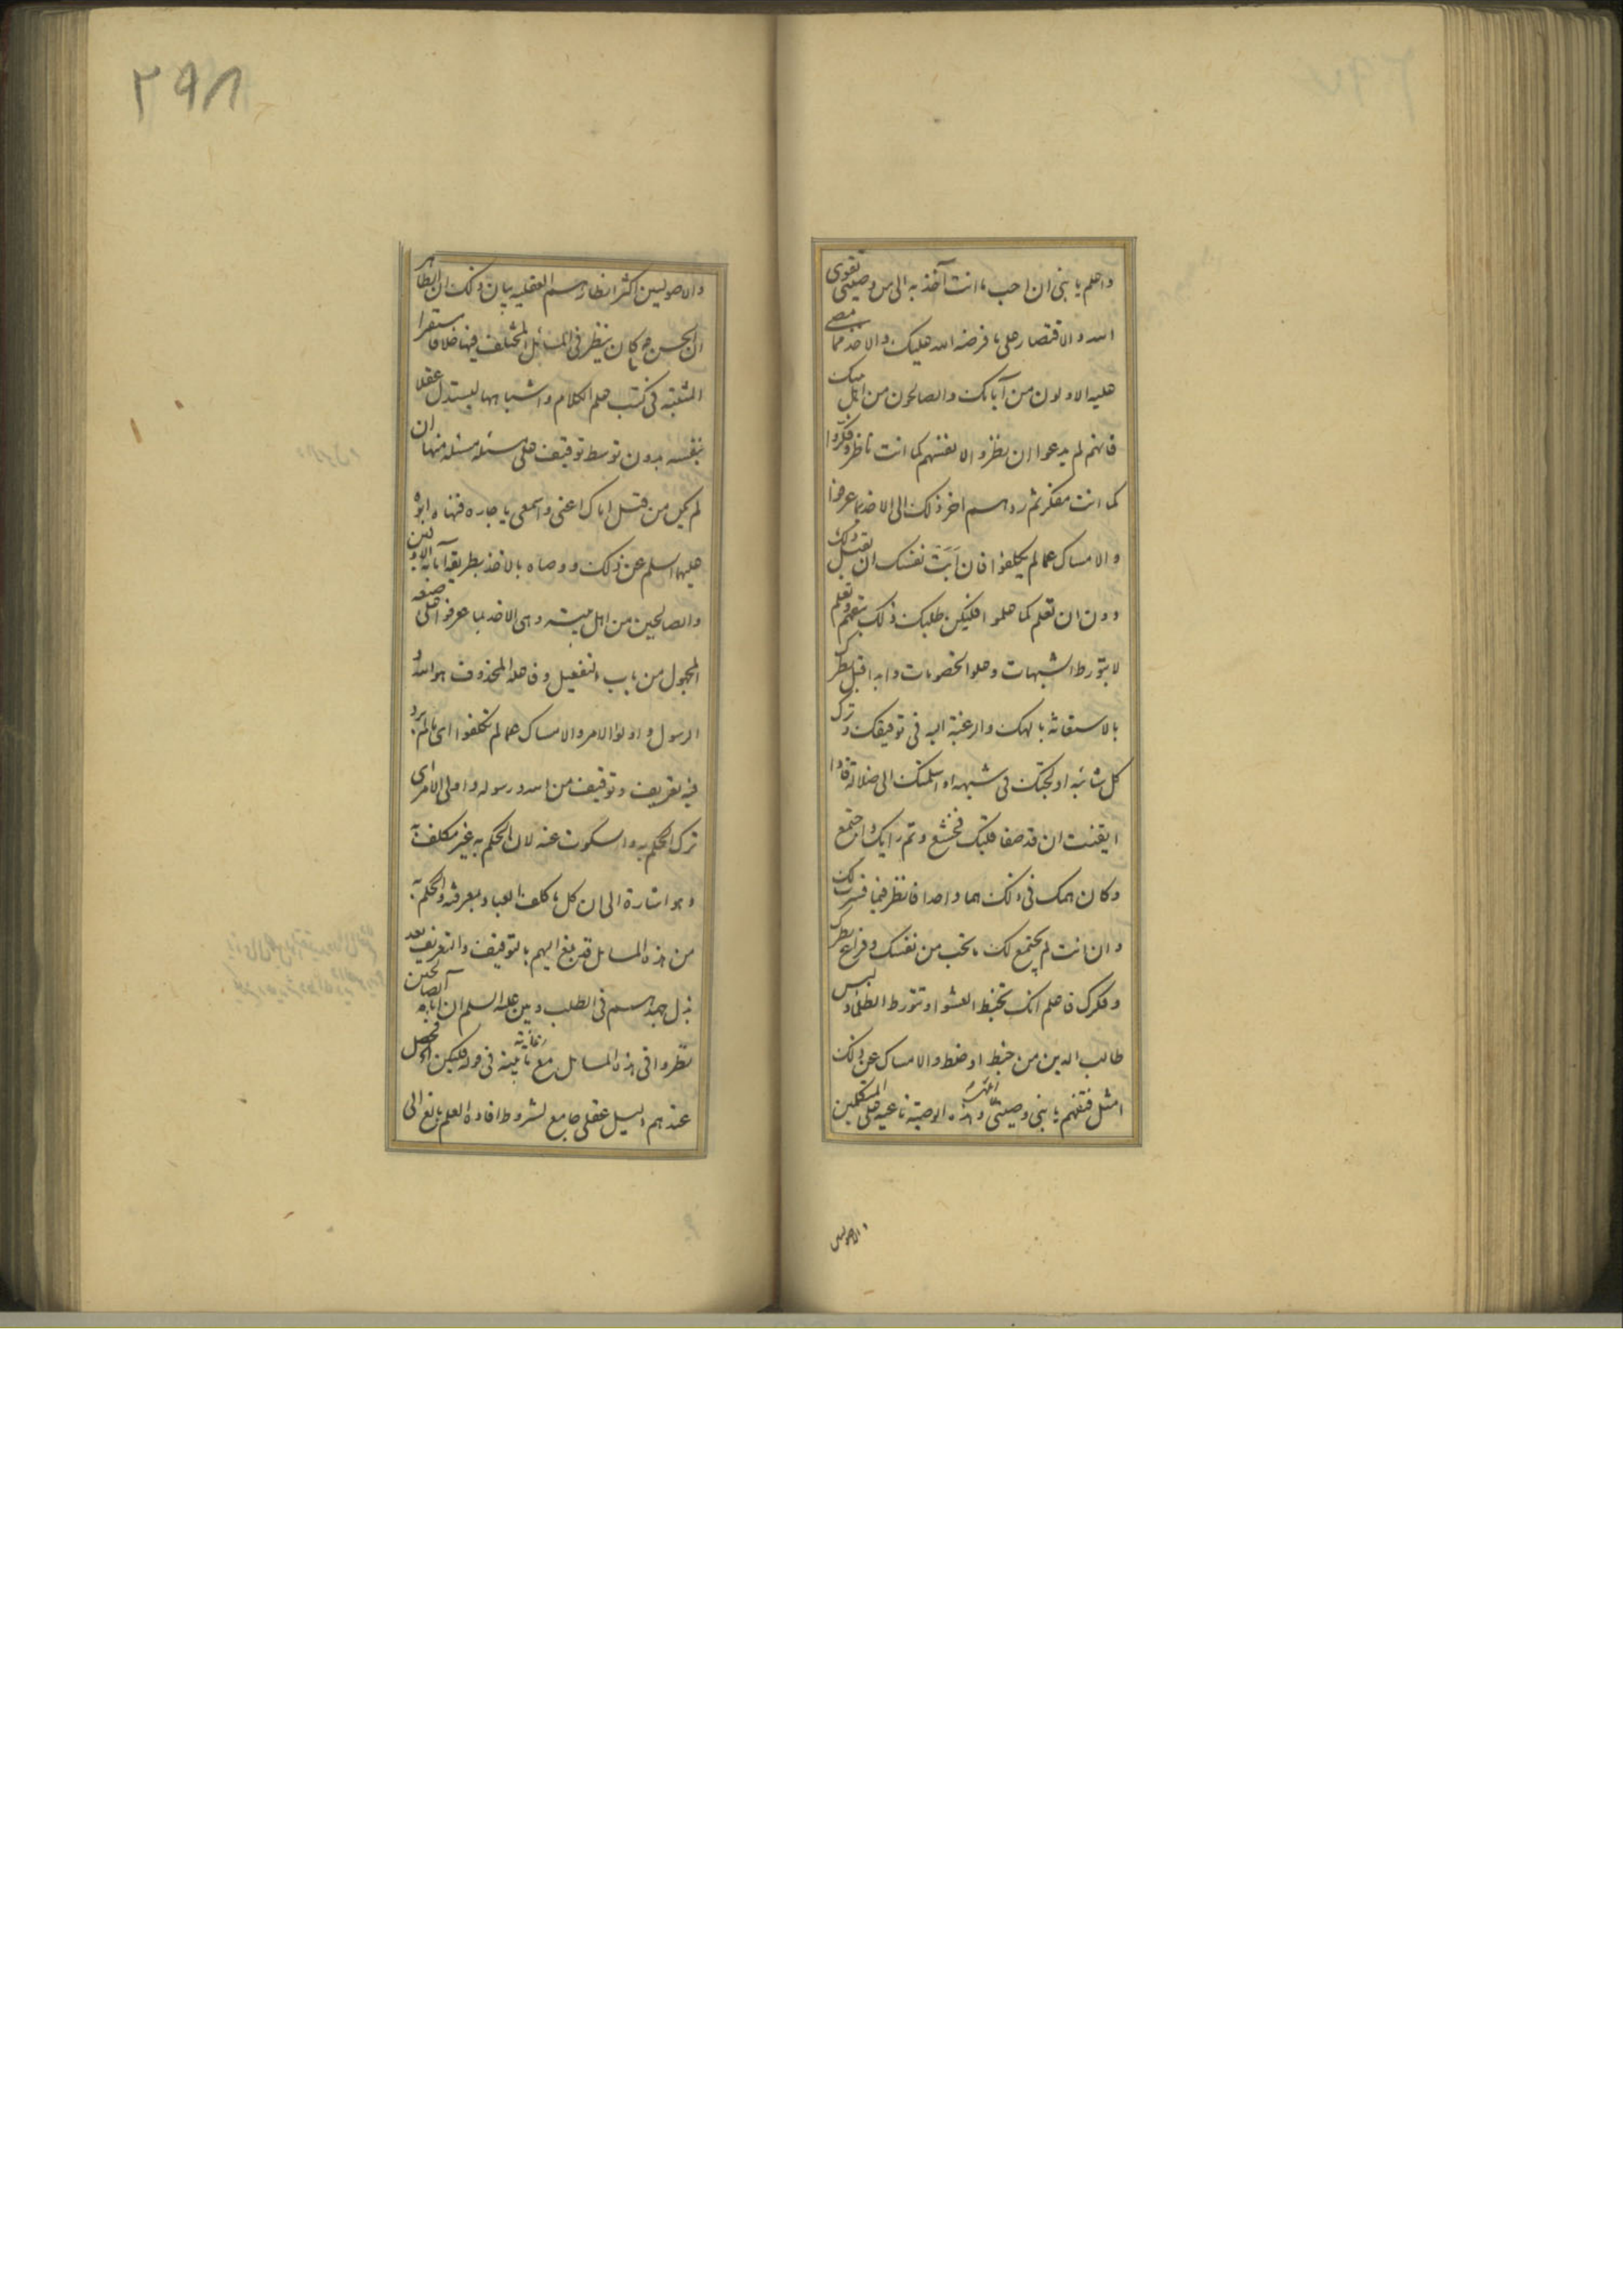 واعلم يا بنى ان احب ما انت آخذ به الى من وصيتى تقوى
الله والاقتصار على ما فرضه الله عليك والاخذ بما مضى
عليه الاولون من آبائك والصالحون من اهل بيتك
فانهم لم يدعوا ان نظروا لانفسهم كما انت ناظر وفكروا
كما انت مفكر ثم ردهم اخر ذلك الى الاخذ بما عرفوا
والامساك عما لم يكلفوا فان اَبَتْ نفسك ان تقبل ذلك
دون ان تعلم كما علموا فليكن طلبك ذلك بتفهم وتعلم
لا بتورط الشبهات وعلو الخصومات وابدا قبل نظرك
بالاستعانة بالهك والرغبة اليه فى توفيقك وترك
كل شائبة اولجتك فى شبهة او اسلمتك الى ضلالة فاذا
ايقنت ان قد صفا قلبك فخشع وتم رايك واجتمع
وكان همك فى ذلك هما واحدا فانظر فيما فسرت لك
وان انت لم يجتمع لك ما تحب من نفسك وفراغ نظرك
وفكرك فاعلم انك تخبط العشوا وتتورط الظلماء وليس
طالب الدين من خبط او خلط والامساك عن ذلك
امثل فتفهم يا بنى وصيتى وهذه الوصية ناعية على المتكلمين
والاصوليين
والاصوليين اكثر انظارهم العقلية بيان ذلك ان الظاهر
ان الحسن ع كان ينظر فى المسائل المختلف فيها خلافا مستقرا
المثبتة فى كتب علم الكلام واشباهها ليستدل عقلا
بنفسه بدون توسط توقيف على مسئلة مسئلة منها ان
لم يكن من قبيل اياك اعنى واسمعى يا جاره فنهاه ابوه
عليهما السلم عن ذلك ووصاه بالاخذ بطريقة آبائه الاولين
والصالحين من اهل بيته وهى الاخذ بما عرفوا على صيغه
المجهول من باب التفعيل وفاعله المحذوف هو الله و
الرسول واولوا الامر والامساك عما لم يكلفوا اى ما لم يرد
فيه تعريف وتوقيف من الله ورسوله واولى الامر اى
ترك الحكم به والسكوت عنه لان الحكم به غير مكلف به
وهو اشارة الى ان كل ما كلف العباد بمعرفته والحكم به
من هذه المسائل قد بلغ اليهم بالتوقيف والتعريف بعد
بذل جهدهم فى الطلب وبين عليه السلم ان آبائه الصالحين
نظروا فى هذه المسائل مع فى قوله فليكن
عندهم دليل عقلى جامع لشروط افادة العلم بالغ الى
۲۹۸